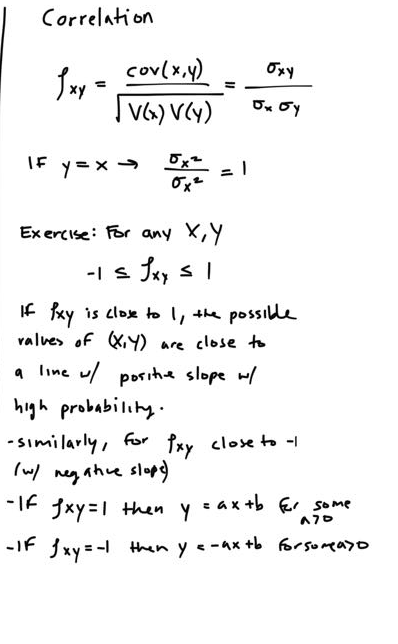 Correlation
ρxy = cov(x,y) / √V(x) V(y) = σxy / σx σy
IF y = x → σx² / σx² = 1
Exercise: For any X,Y
-1 ≤ ρxy ≤ 1
If ρxy is close to 1, the possible
values of (X,Y) are close to
a line w/ positive slope w/
high probability.
-similarly, for ρxy close to -1
(w/ negative slope)
-IF ρxy=1 then y = ax+b for some a>0
-IF ρxy=-1 then y = -ax+b for some a>0